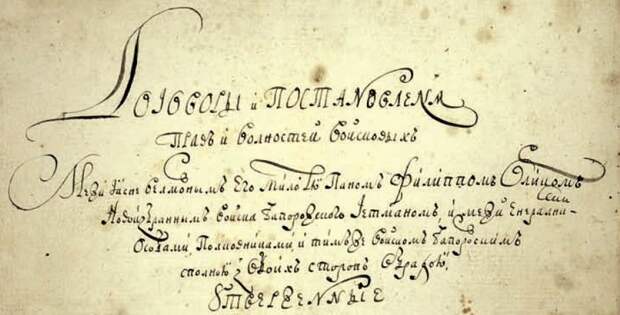 Договоры и Постановлєня
Правъ и волностей войсковыхъ
Межи Ясне велможнымъ Его Милостю Паномъ Филиппомъ Орликомъ
Новоизбраннымъ войска Запорозского Гетманомъ, и межи Енералними
Особами, Полковниками, и тимъже войскомъ Запорозскимъ
сполною з обоихъ сторонъ обрадою,
Утверженные